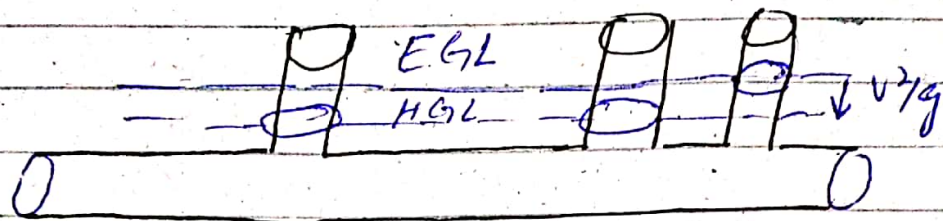 EGL
HGL
v²/g